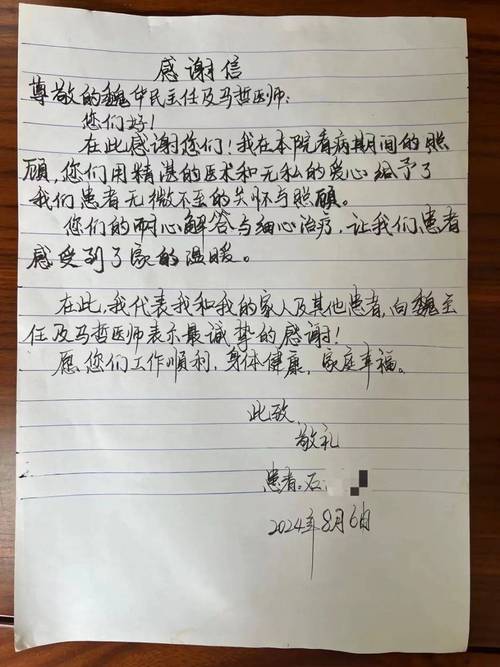 感谢信
尊敬的魏华民主任及马哲医师:
您们好!
在此感谢您们!我在本院看病期间的照
顾,您们用精湛的医术和无私的爱心给予了
我们患者无微不至的关怀与照顾。
您们的耐心解答与细心治疗,让我们患者
感受到了家的温暖。
在此,我代表我和我的家人及其他患者,向魏主
任及马哲医师表示最诚挚的感谢!
愿您们工作顺利,身体健康,家庭幸福。
此致
敬礼
患者:石
2024年8月6日